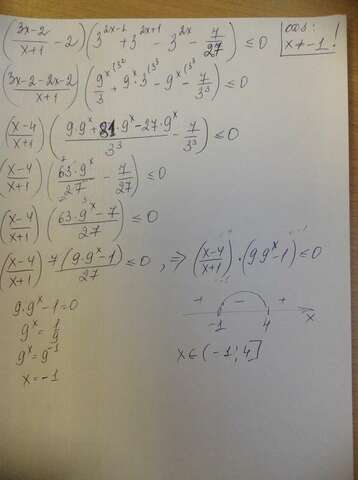 ((3x-2)/(x+1) - 2)(3^(2x-1) + 3^(2x+1) - 3^(2x) - 7/27) ≤ 0
ОДЗ:
x ≠ -1 !
((3x-2-2x-2)/(x+1))(9^x/3 + 9^x·3 - 9^x - 7/3^3) ≤ 0
((x-4)/(x+1))((9·9^x + 81·9^x - 27·9^x)/3^3 - 7/3^3) ≤ 0
((x-4)/(x+1))(63·9^x/27 - 7/27) ≤ 0
((x-4)/(x+1))((63·9^x - 7)/27) ≤ 0
((x-4)/(x+1)) 7(9·9^x - 1)/27 ≤ 0 , => ((x-4)/(x+1))·(9·9^x - 1) ≤ 0
9·9^x - 1 = 0
9^x = 1/9
9^x = 9^-1
x = -1
+ - +
-1 4 x
x ∈ (-1; 4]